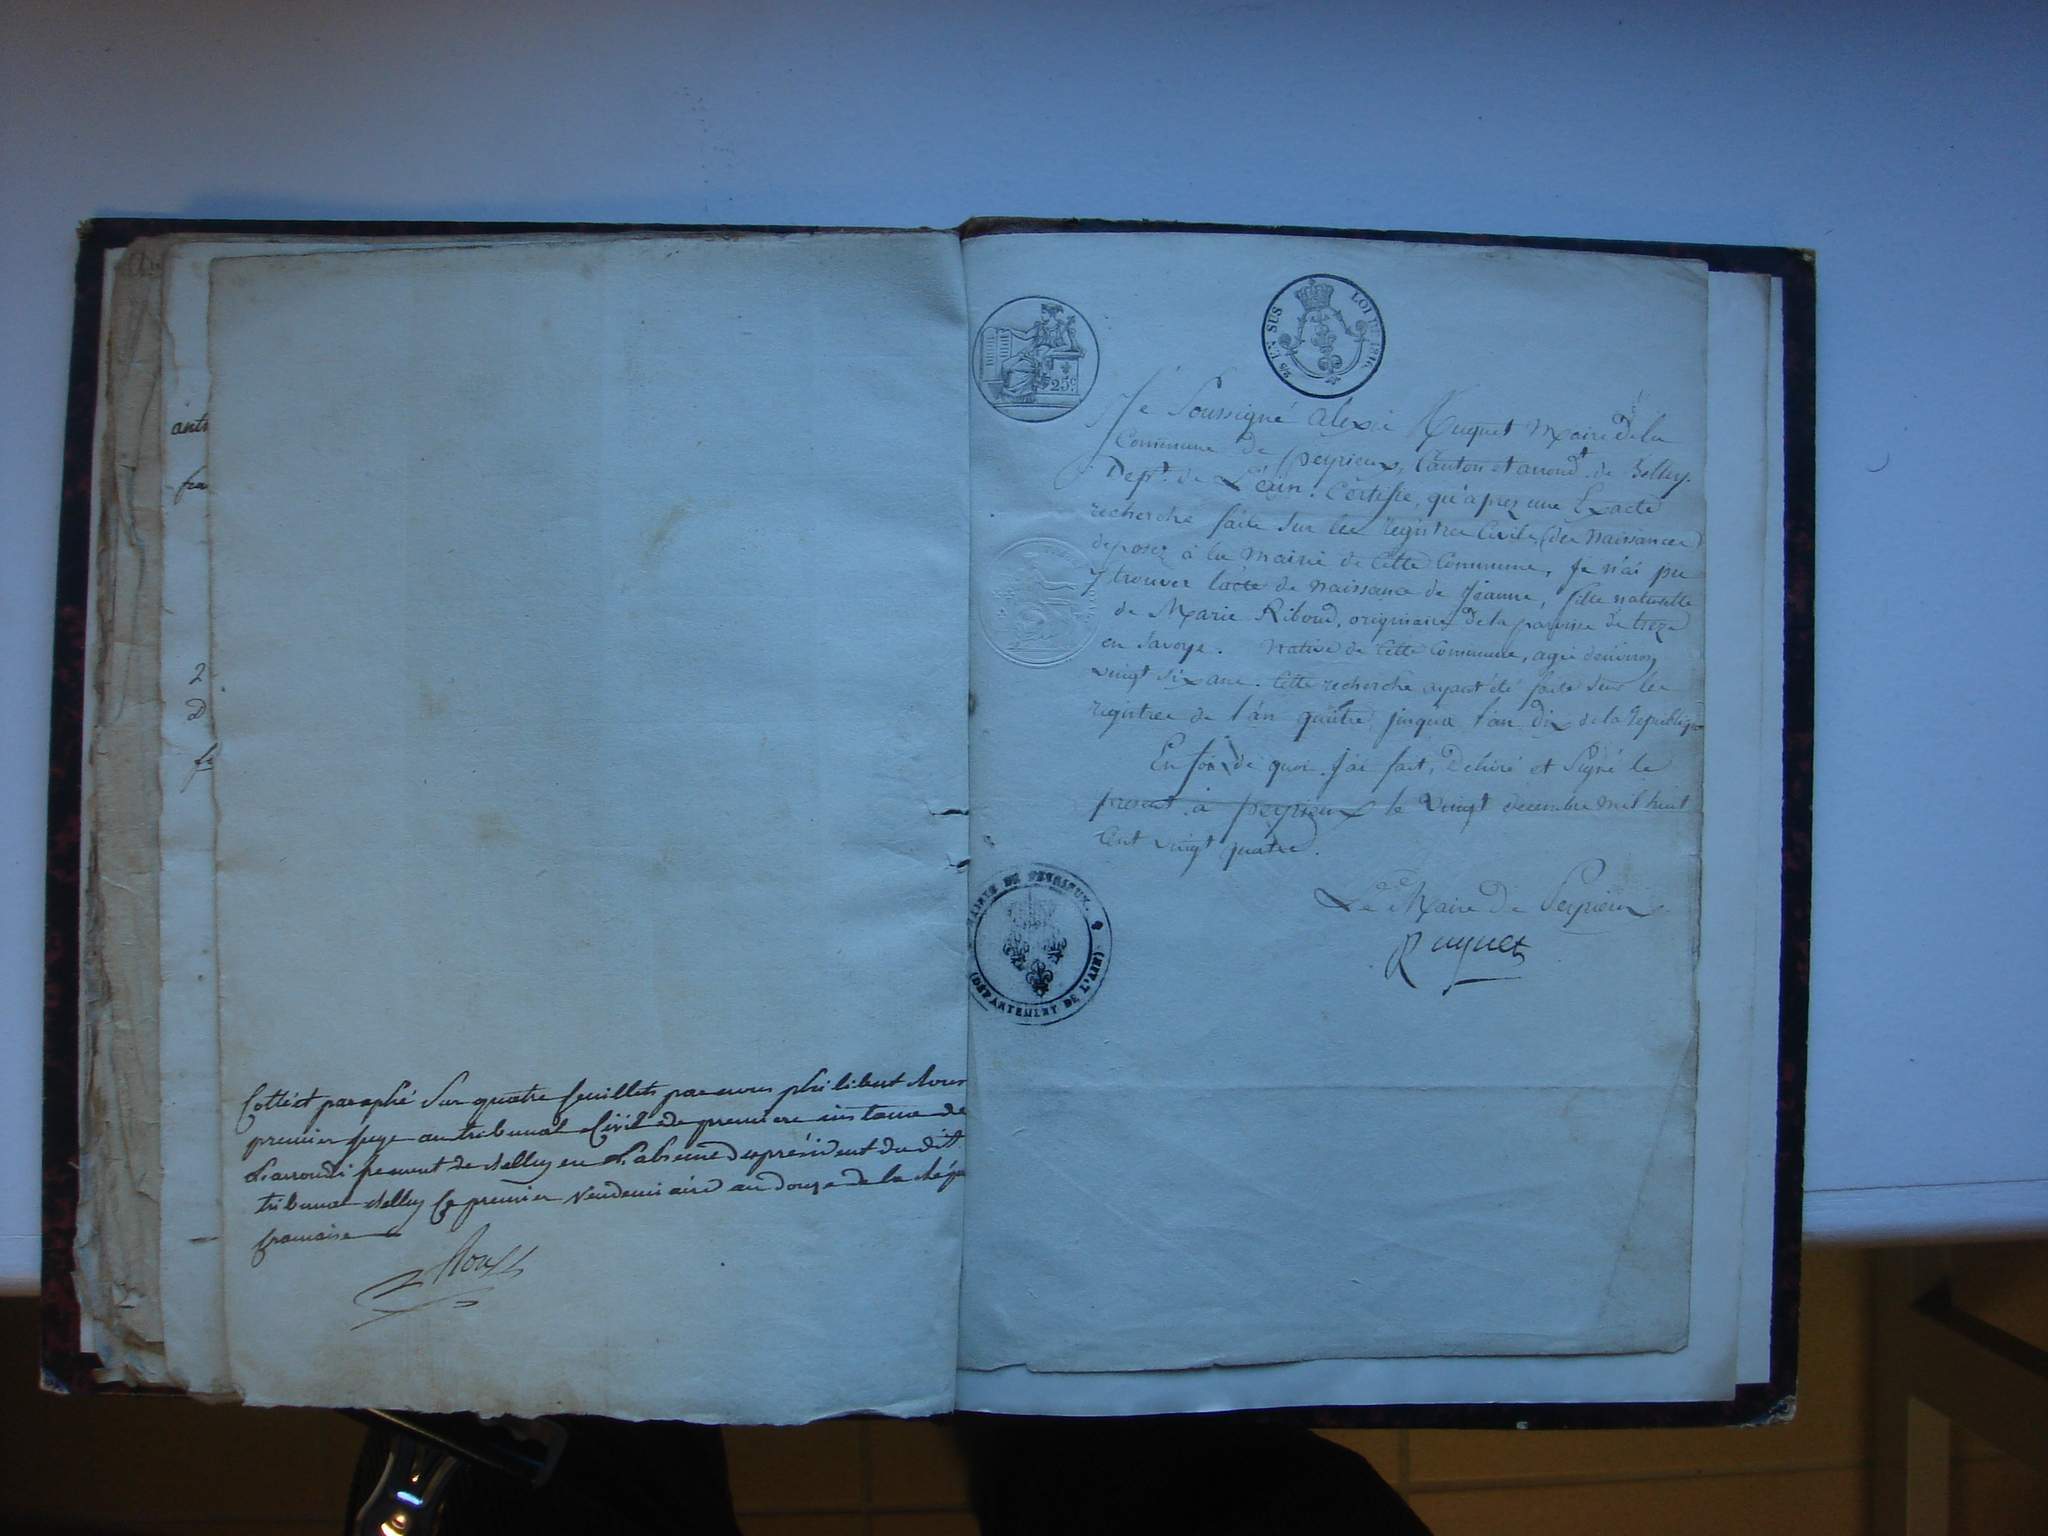 Cotté et paraphé Sur quatre feuillets par nous philibert Roux
premier juge au tribunal Civil de premiere instance de
L'arrondissement de Belley en L'absence du président du dit
tribunal Belley le premier Vendemiaire an douze de la Répu
francaise
Roux
25 c
EN SUS
LOI DE 1816
Je Soussigné alexis Huguet Maire de la
Commune de peyrieux, Canton et arrond.t de Belley.
Dep.t de L'ain. Certifie, qu'aprez une Exacte
recherche faite Sur les registres Civils (des Naissances)
deposez à la Mairie de Cette Commune, Je n'ai pu
y trouver l'acte de Naissance de Jeanne, fille naturelle
de Marie Riboud, originaire de la paroisse de
en Savoye. Native de Cette Commune, agée d'environ
vingt six ans. Cette recherche ayant été faite Sur les
registres de l'an quatre jusqu'a l'an dix de la Republiq
En foi de quoi J'ai fait, Delivré et Signé le
present à peyrieux le vingt decembre mil huit
Cent vingt quatre.
Le Maire De Peyrieux
Huguet
MAIRIE DE PEYRIEUX.
(DÉPARTEMENT DE L'AIN)